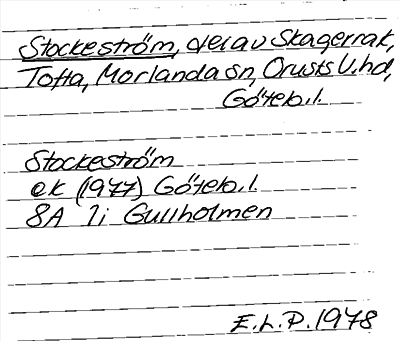 Stockeström, del av Skagerrak,
Tofta, Morlanda sn, Orusts V. hd,
Göteb. l.
Stockeström
ek (1977) Göteb. l.
8A 7i Gullholmen
E. L. P. 1978